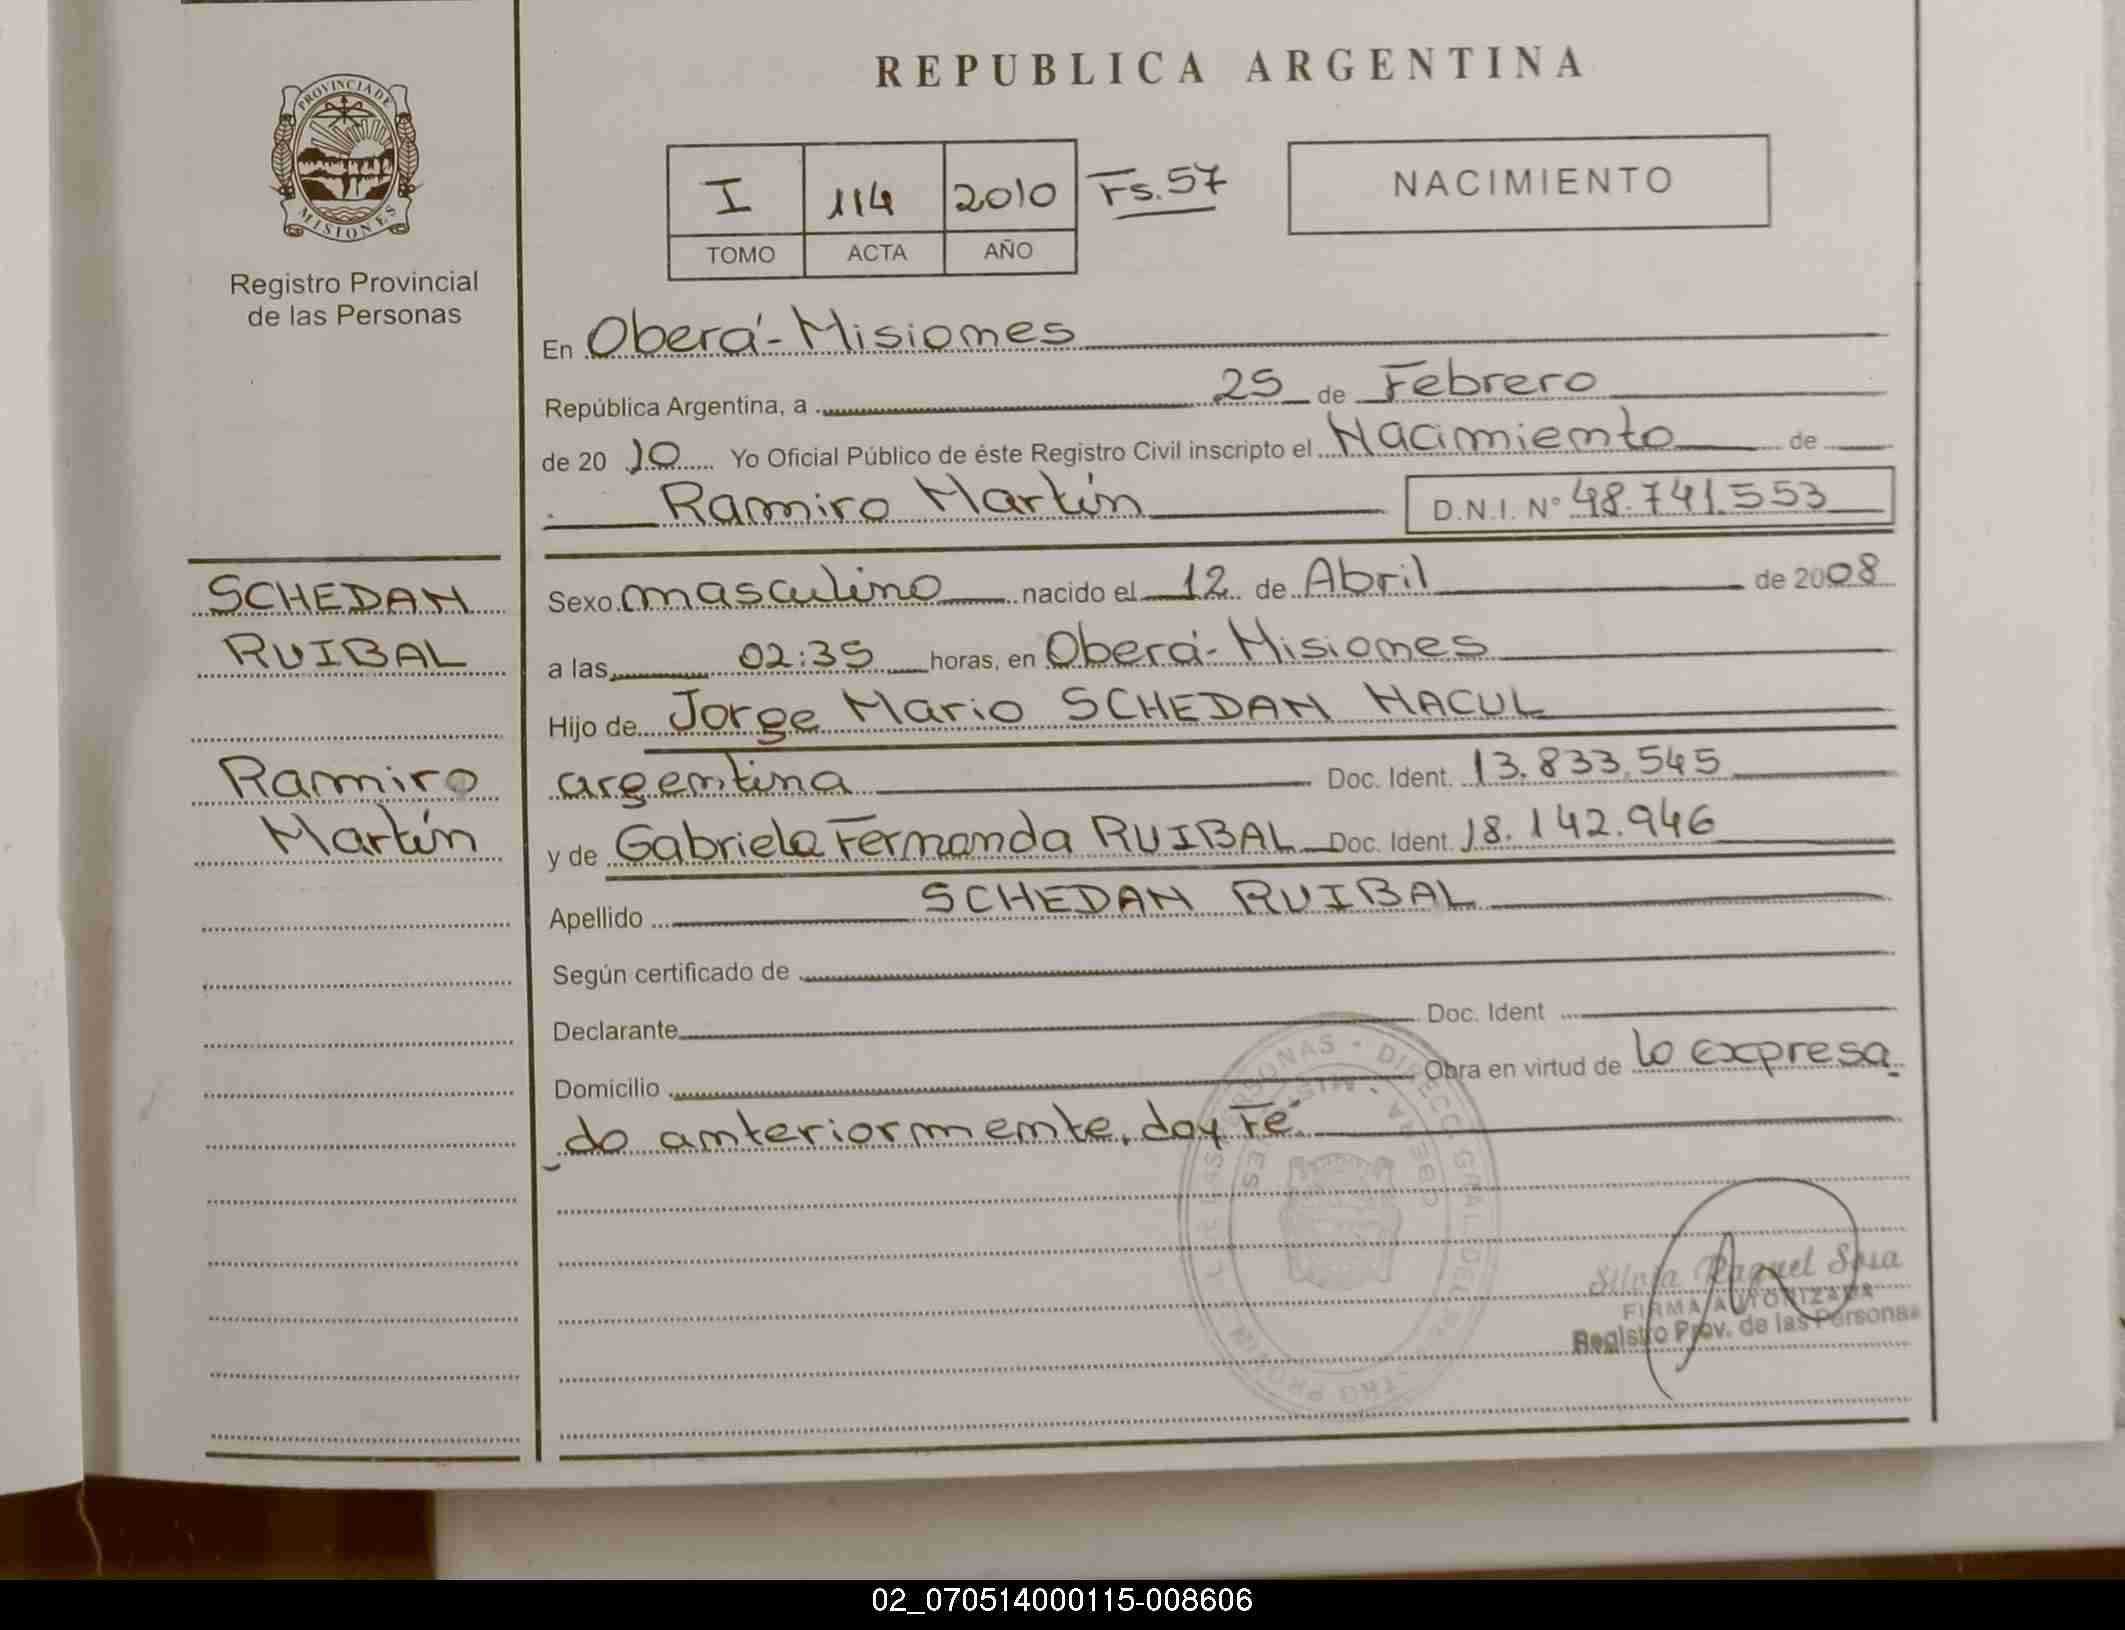 REPUBLICA ARGENTINA
PROVINCIA DE
MISIONES
Registro Provincial
de las Personas
I 114 2010 Fs. 57
TOMO ACTA AÑO
NACIMIENTO
En Oberá - Misiones
República Argentina, a 25 de Febrero
de 20 10 Yo Oficial Público de éste Registro Civil inscripto el Nacimiento de
Ramiro Martín D.N.I. Nº 48.741.553
SCHEDAN
RUIBAL
Ramiro
Martín
Sexo masculino nacido el 12 de Abril de 2008
a las 02:35 horas, en Oberá - Misiones
Hijo de Jorge Mario SCHEDAN NACUL
argentina Doc. Ident. 13.833.545
y de Gabriela Fernanda RUIBAL Doc. Ident. 18.142.946
Apellido SCHEDAN RUIBAL
Según certificado de
Declarante Doc. Ident
Domicilio Obra en virtud de lo expresa
do anteriormente, doy Fé.
Silvia Raquel Sosa
FIRMA AUTORIZADA
Registro Prov. de las Personas
02_070514000115-008606